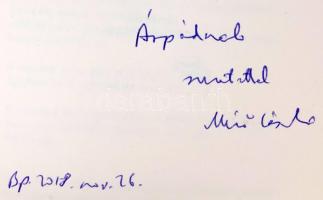 Árpádnak
szeretettel
Miró László
Bp. 2018. nov. 26.
darabanth.com